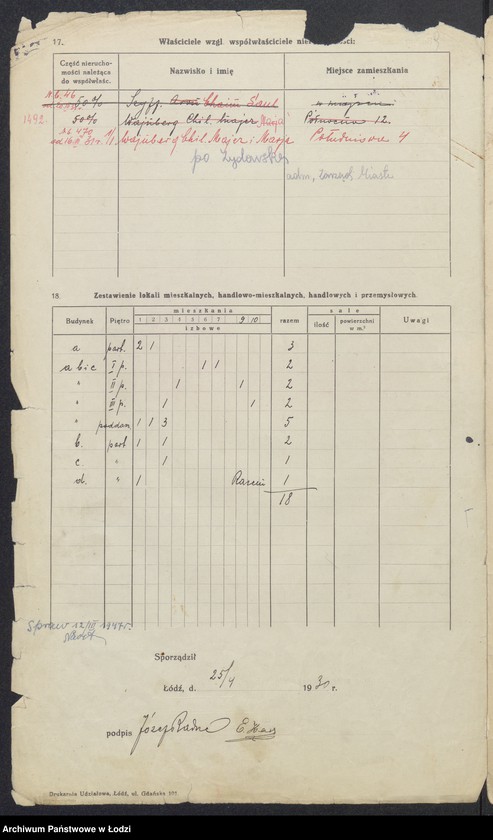 17. Właściciele wzgl. współwłaściciele
Część nierucho-
mości należąca
do współwłaśc.
Nazwisko i imię
Miejsce zamieszkania
50% Chaim
50% Wajnberg Chil Majer Marja 12.
1942
Wajnberg Chil. Majer i Marja Południowa 4
po
adm. Zarząd Miasta
18. Zestawienie lokali mieszkalnych, handlowo-mieszkalnych, handlowych i przemysłowych.
Budynek Piętro mieszkania razem sale Uwagi
1 2 3 4 5 6 7 9 10 ilość powierzchni
w m.²
izbowe
a part. 2 1 3
a b i c I p. 1 1 2
" II p. 1 1 2
" III p. 1 1 2
" poddasz 1 1 3 5
b. part 1 1 2
c " 1 1
d. " 1 Razem 1
18
12/III 1947r.
Sporządził
Łódź, d. 25/4 1930 r.
podpis Józef
Drukarnia Udziałowa, Łódź, ul. Gdańska
Archiwum Państwowe w Łodzi